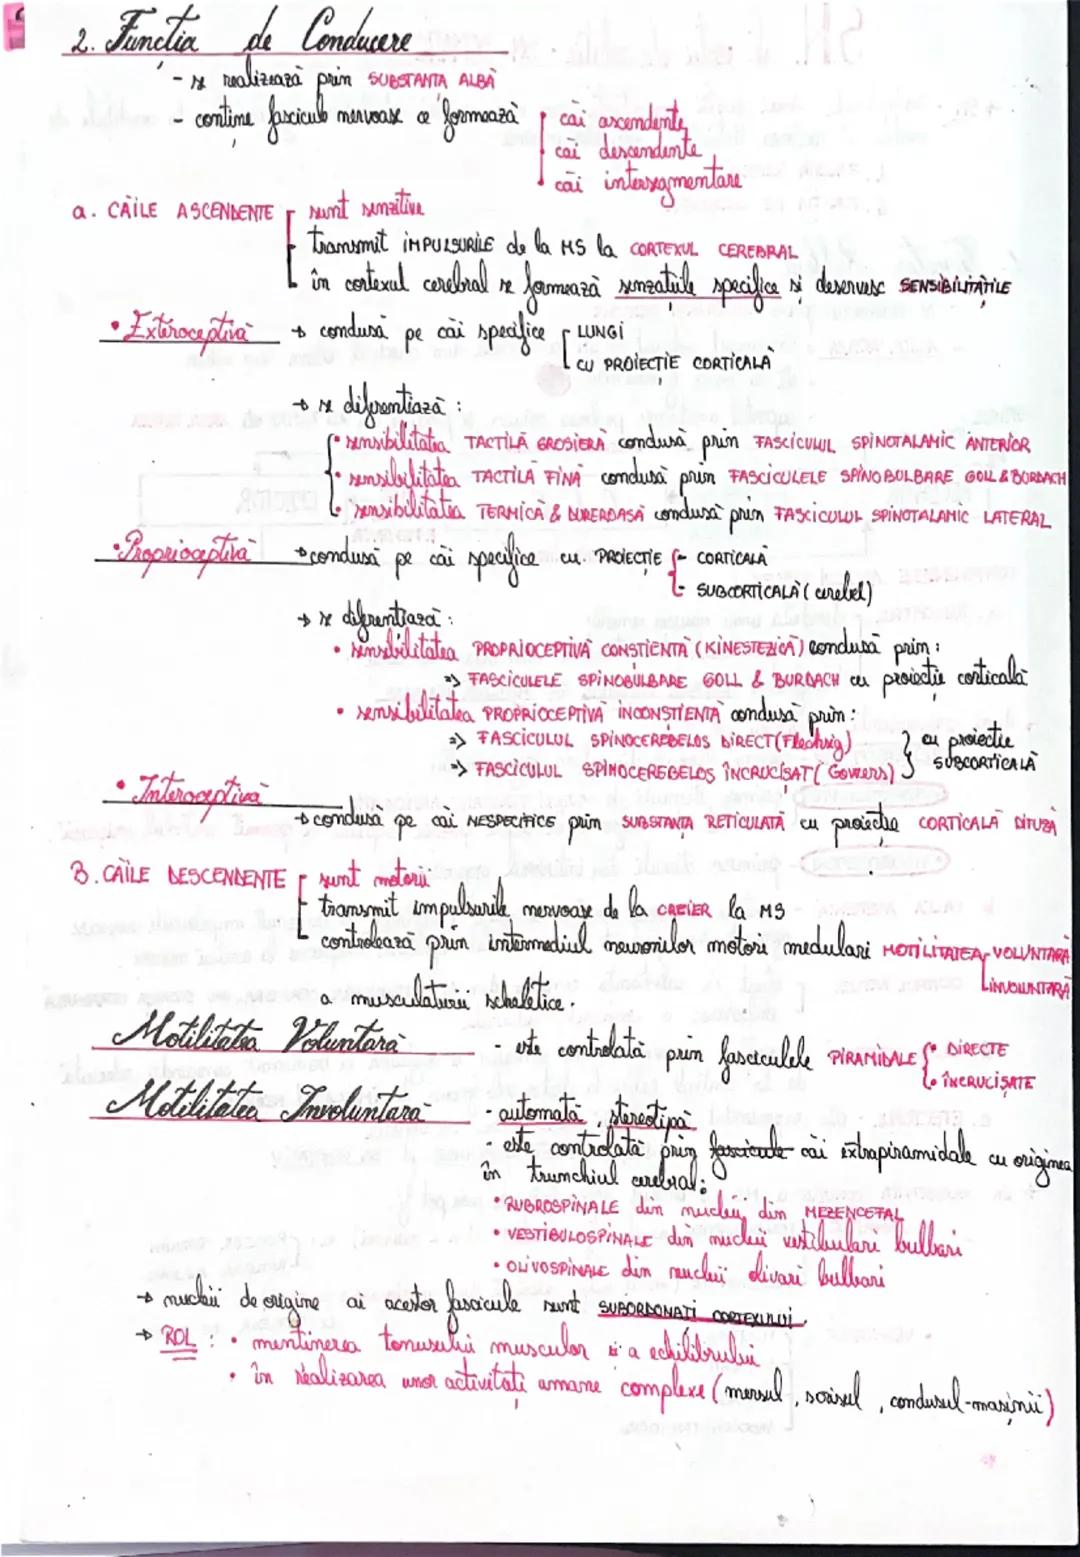 2. Funcția de Conducere
- se realizează prin SUBSTANȚA ALBĂ
- conține fascicule nervoase ce formează
căi ascendente
căi descendente
căi intersegmentare
a. CĂILE ASCENDENTE
sunt senzitive
transmit IMPULSURILE de la MS la CORTEXUL CEREBRAL
în cortexul cerebral se formează senzațiile specifice și deservesc SENSIBILITĂȚILE
• Exteroceptivă → condusă pe căi specifice
LUNGI
CU PROIECȚIE CORTICALĂ
→ se diferențiază :
• sensibilitatea TACTILĂ GROSIERĂ condusă prin FASCICULUL SPINOTALAMIC ANTERIOR
• sensibilitatea TACTILĂ FINĂ condusă prin FASCICULELE SPINOBULBARE GOLL & BURDACH
• sensibilitatea TERMICĂ & DUREROASĂ condusă prin FASCICULUL SPINOTALAMIC LATERAL
• Proprioceptivă → condusă pe căi specifice cu PROIECȚIE
- CORTICALĂ
- SUBCORTICALĂ (cerebel)
→ se diferențiază :
• sensibilitatea PROPRIOCEPTIVĂ CONȘTIENTĂ (KINESTEZICĂ) condusă prin :
=> FASCICULELE SPINOBULBARE GOLL & BURDACH cu proiecție corticală
• sensibilitatea PROPRIOCEPTIVĂ INCONȘTIENTĂ condusă prin :
=> FASCICULUL SPINOCEREBELOS DIRECT (Flechsig)
=> FASCICULUL SPINOCEREBELOS ÎNCRUCIȘAT (Gowers)
cu proiecție
SUBCORTICALĂ
• Interoceptivă
→ condusă pe căi NESPECIFICE prin SUBSTANȚA RETICULATĂ cu proiecție CORTICALĂ DIFUZĂ
B. CĂILE DESCENDENTE
sunt motorii
transmit impulsurile nervoase de la CREIER la MS
controlează prin intermediul neuronilor motori medulari MOTILITATEA VOLUNTARĂ
INVOLUNTARĂ
a musculaturii scheletice.
Motilitatea Voluntară - este controlată prin fasciculele PIRAMIDALE
• DIRECTE
• ÎNCRUCIȘATE
Motilitatea Involuntara - automată, stereotipă
- este controlată prin fascicule căi extrapiramidale cu originea
în trunchiul cerebral :
• RUBROSPINALE din nucleii din MEZENCEFAL
• VESTIBULOSPINALE din nucleii vestibulari bulbari
• OLIVOSPINALE din nucleii olivari bulbari
→ nucleii de origine ai acestor fascicule sunt SUBORDONAȚI CORTEXULUI.
→ ROL : • menținerea tonusului muscular și a echilibrului
• în realizarea unor activități umane complexe (mersul, scrisul, condusul-mașinii)